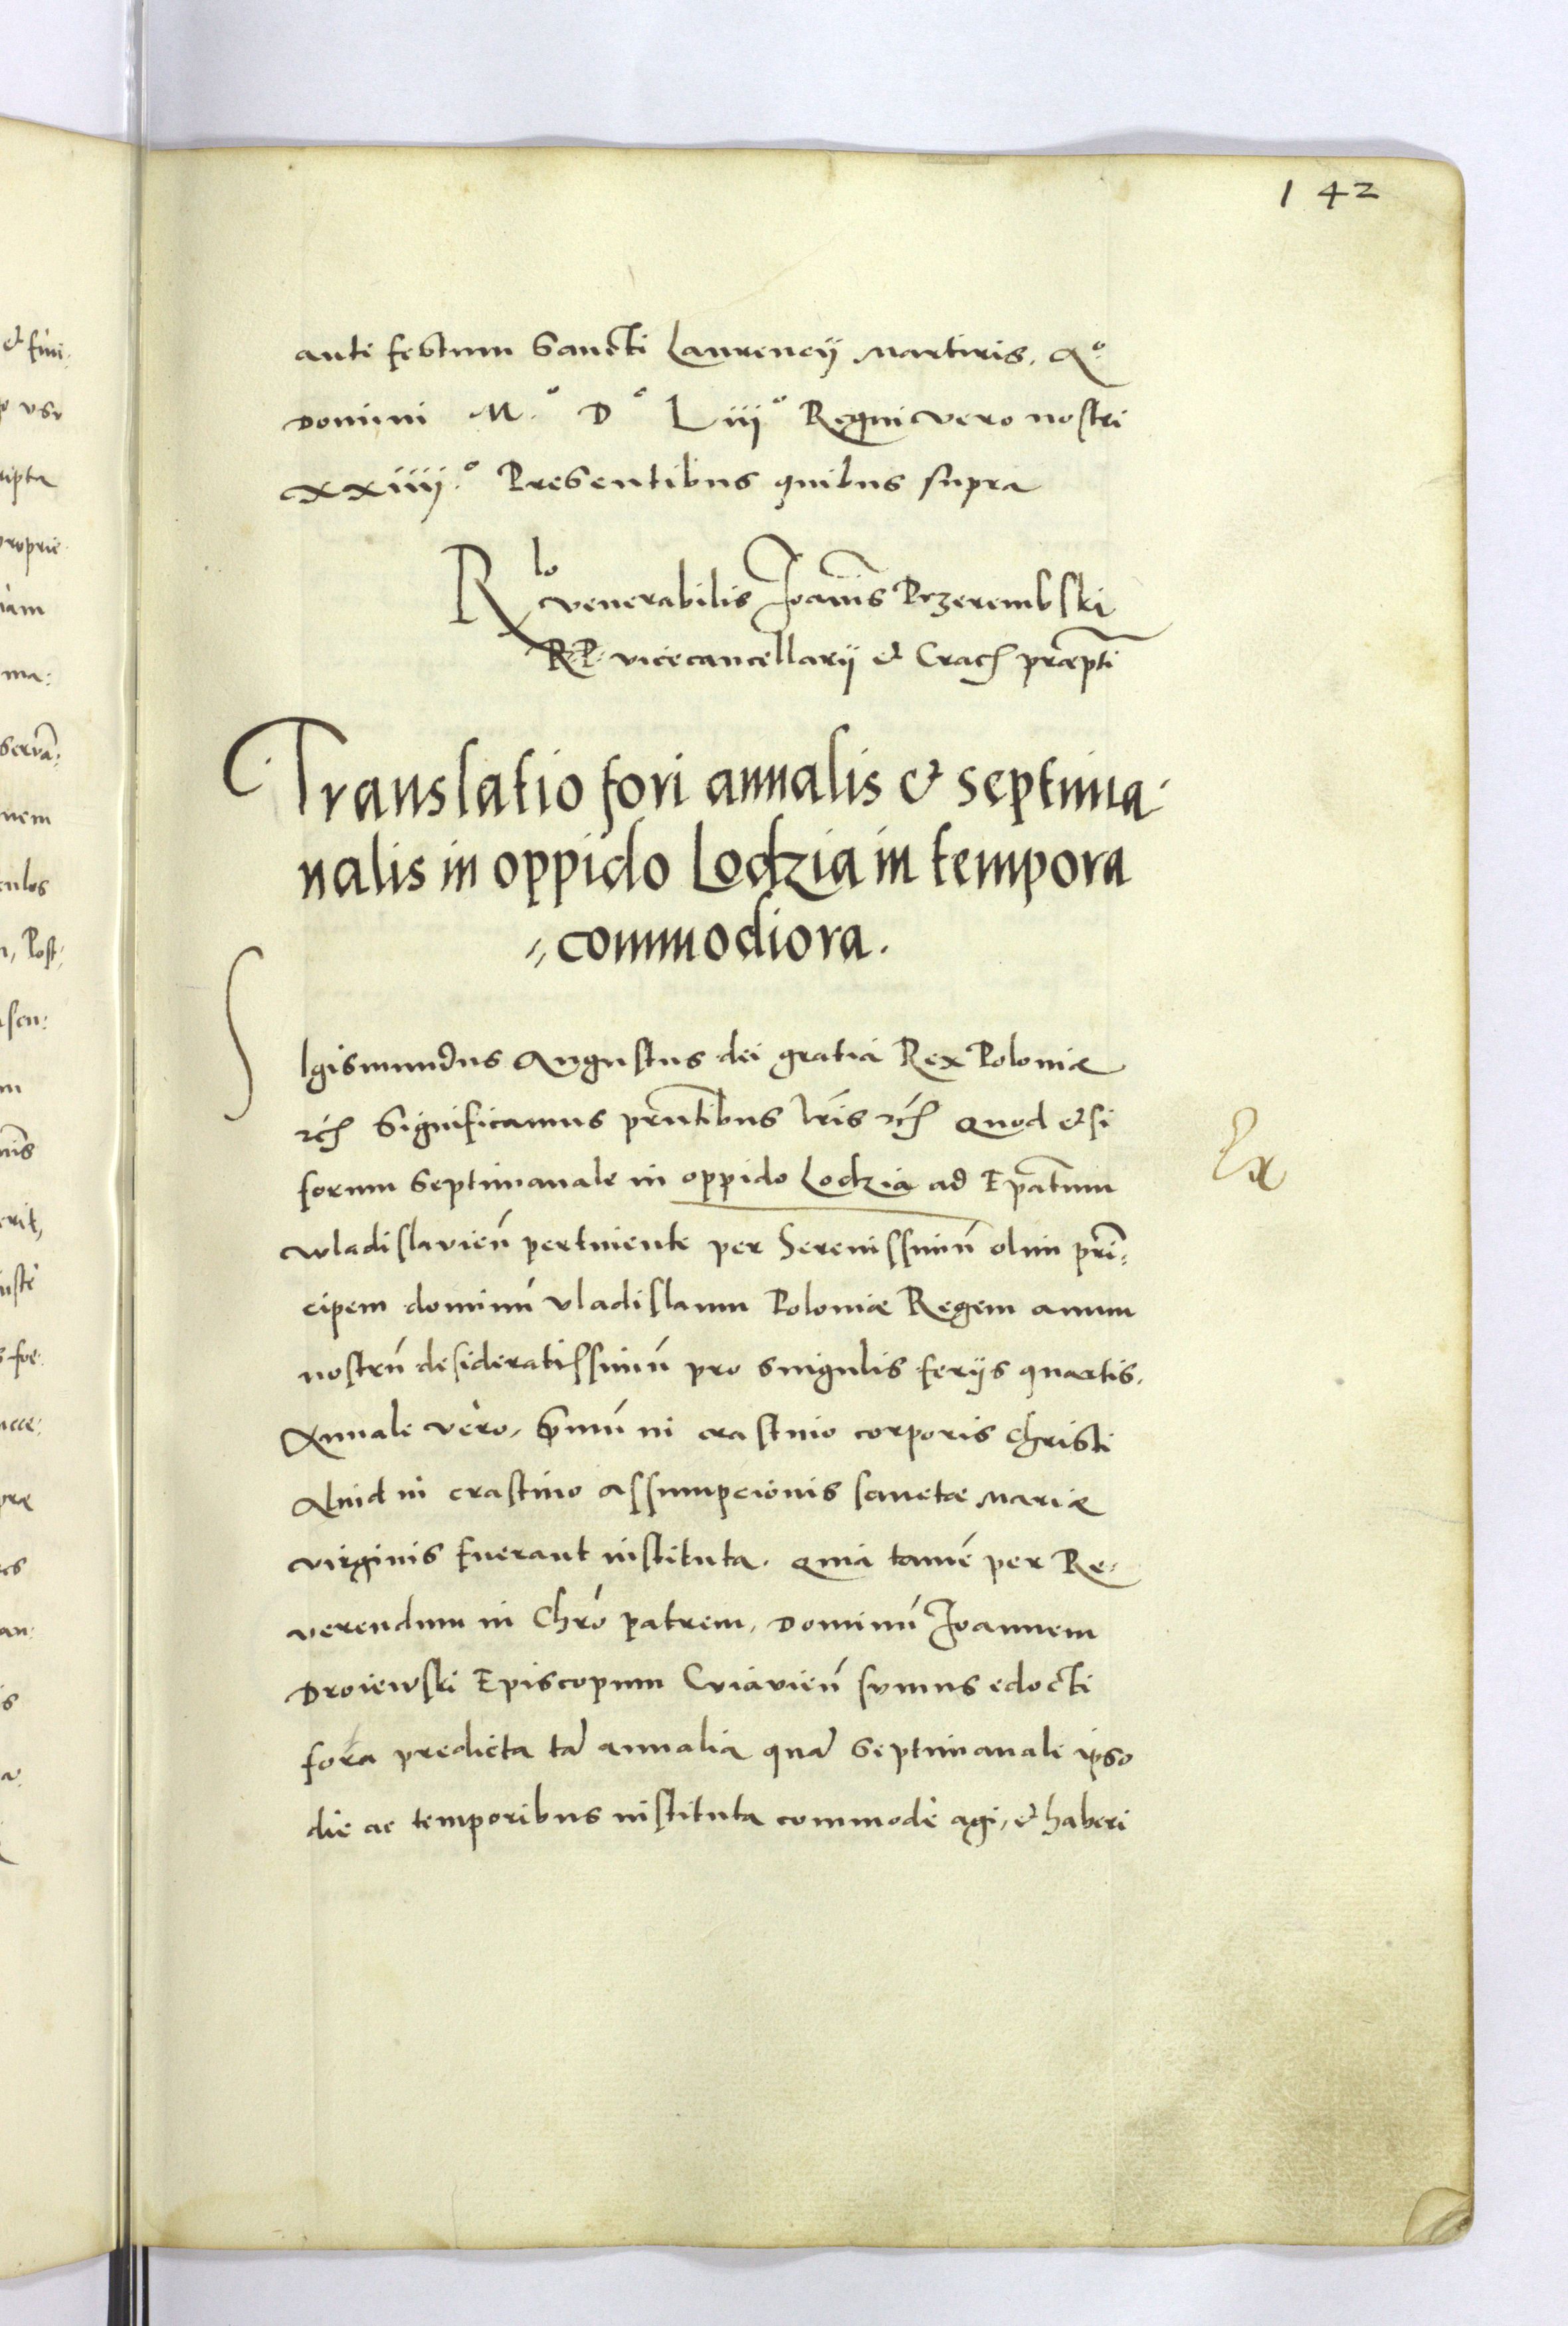 142
ante festum Sancti Laurencij Martiris. Aº
Domini M.º Dº Liijº Regni vero nostri
xxiiij.º Presentibus quibus supra
Rlo venerabilis Joanis Przerembski
R. P. vicecancellarij et Crac praepti
Translatio fori annalis et septima:
nalis in oppido Lodzia in tempora
commodiora.
SIgismundus Augustus dei gratia Rex Poloniæ
etc Significamus prntibus lris etc Quod etsi
forum Septimanale in oppido Lodzia ad Epatum
wladislavien pertinente per Serenissimu olim prin:
cipem dominu vladislaum Poloniæ Regem auum
nostru desideratissimu pro singulis ferijs quartis.
Annale vero, vnnu in crastino corporis Christi
Aliud in crastino assumpcionis sanctae Mariæ
virginis fuerant instituta. Quia tame per Re:
verendum in Chro patrem, Dominu Joannem
Droiewski Episcopum Cuiavien sumus edocti
fora predicta ta annalia qua septimanale ipso
die ac temporibus instituta commode agi, et haberi
Ex
et fini:
vsu
ripta
proprie
ma:
serva:
nem
Post: